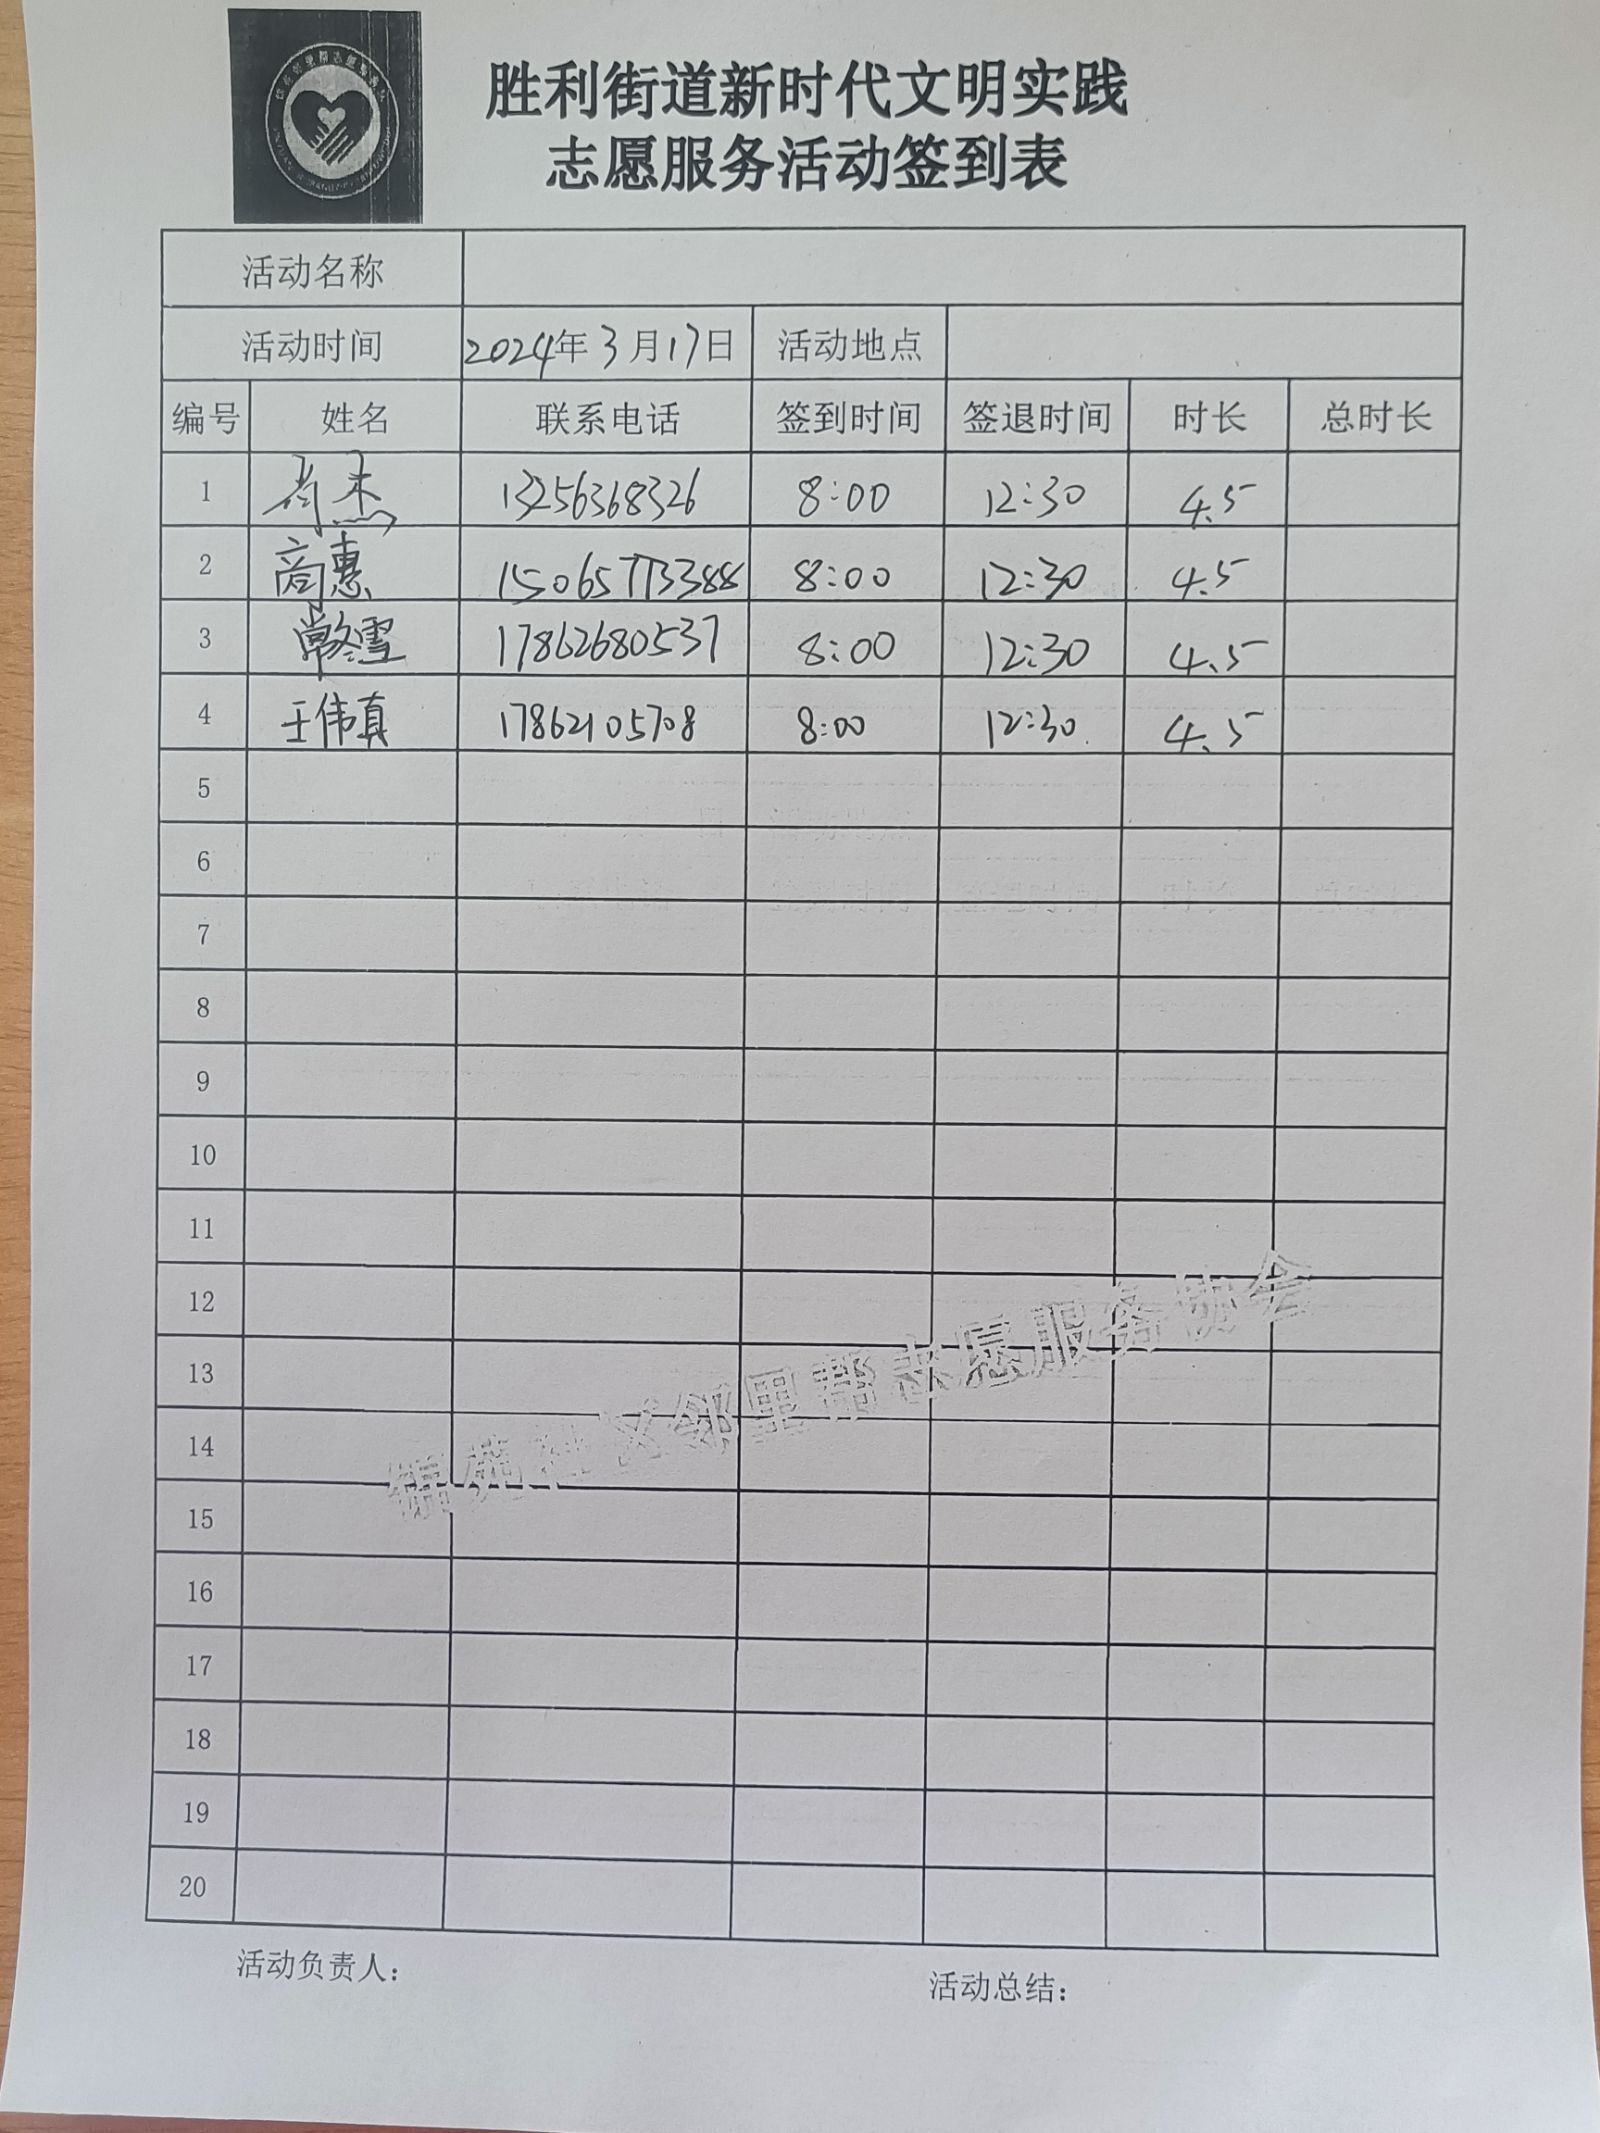 胜利街道新时代文明实践
志愿服务活动签到表
活动名称
活动时间 2024年3月17日 活动地点
编号 姓名 联系电话 签到时间 签退时间 时长 总时长
1 杰 13256368326 8:00 12:30 4.5
2 商惠 15065773388 8:00 12:30 4.5
3 常冬雪 17862680537 8:00 12:30 4.5
4 王伟真 17862105708 8:00 12:30 4.5
5
6
7
8
9
10
11
12
13
14
15
16
17
18
19
20
锦苑社区邻里帮志愿服务协会
活动负责人：
活动总结：